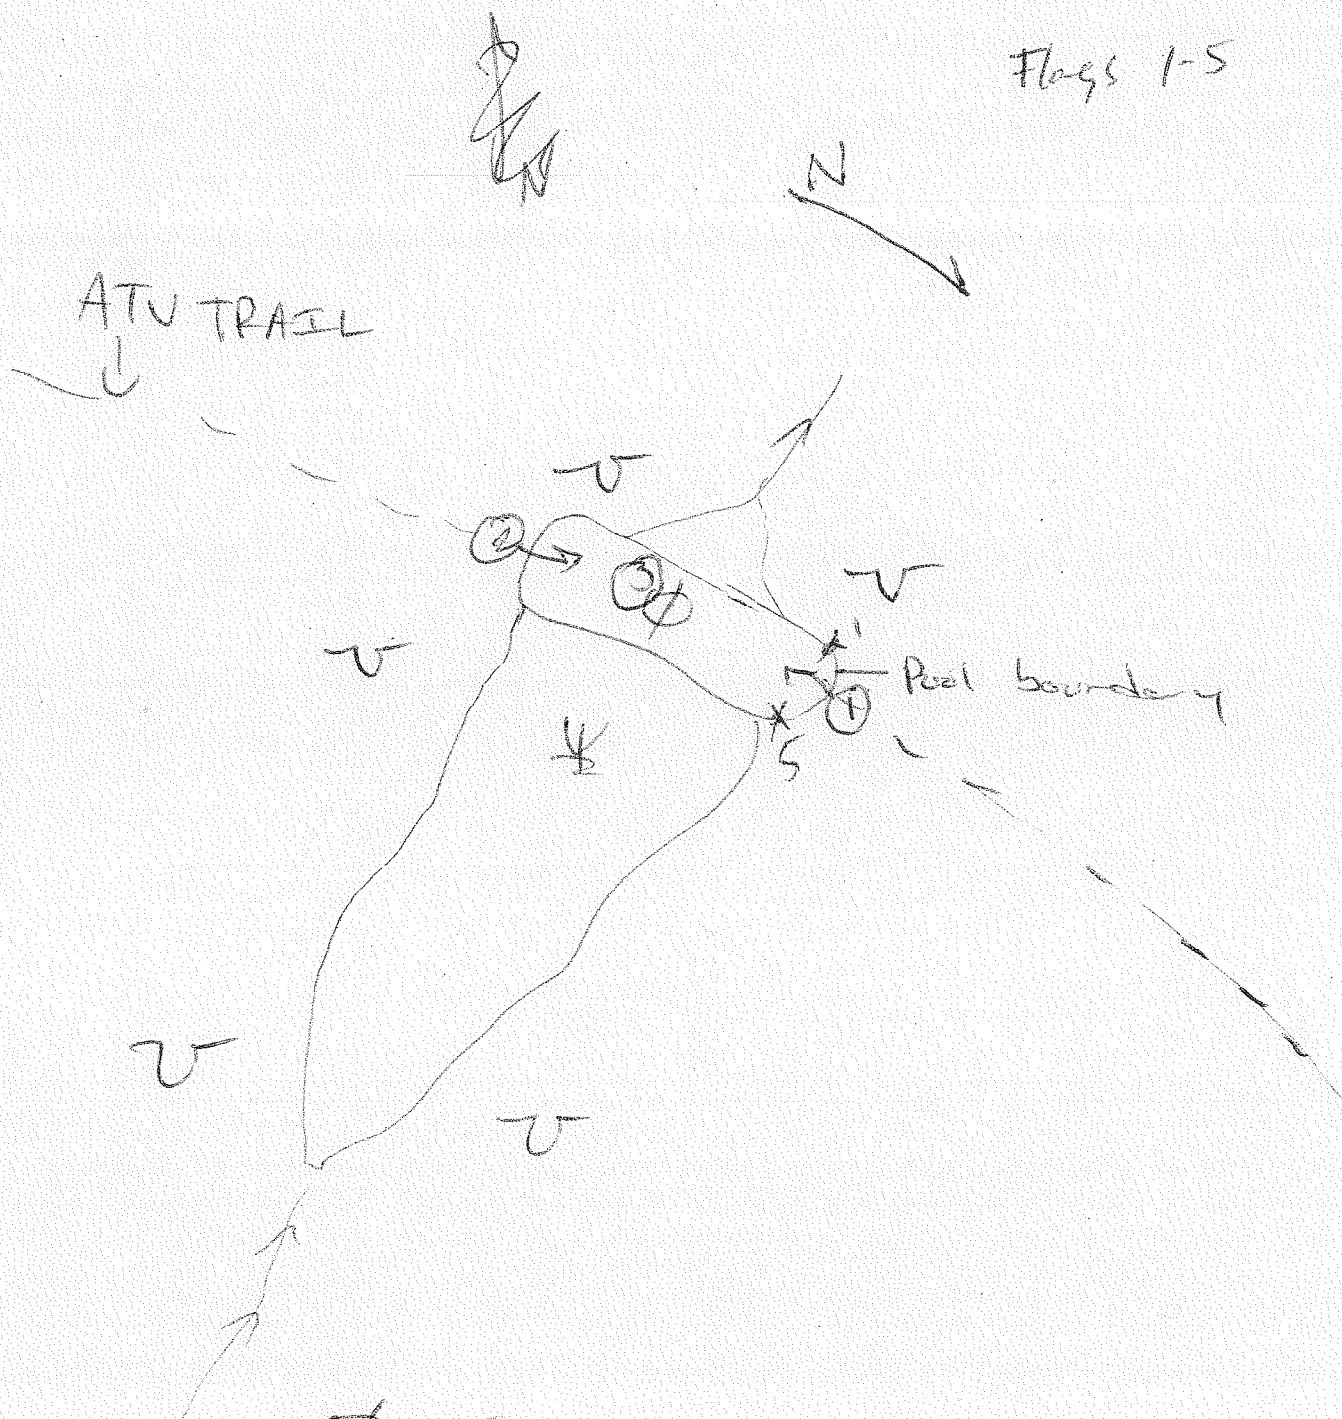 Flags 1-5
N
N
ATV TRAIL
2
3
1
Pool boundary
1
5